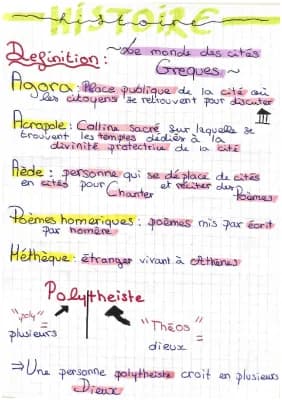 HISTOIRE
histoire
~Le monde des cités
Definition :
Greques~
Agora : Place publique de la cité où
les citoyens se retrouvent pour discuter
Acropole : Colline sacré sur laquelle se
trouvent les temples dédier à la
divinité protectrice de la cité
Aède : personne qui se déplace de cités
en cités pour Chanter et réciter des Poèmes
Poèmes homeriques : poèmes mis par écrit
par homère
Méthèque : étranger vivant à Athènes
Polytheiste
"poly" =
plusieurs
"Théos" =
dieux
⇒ Une personne polytheiste croit en plusieurs
Dieux